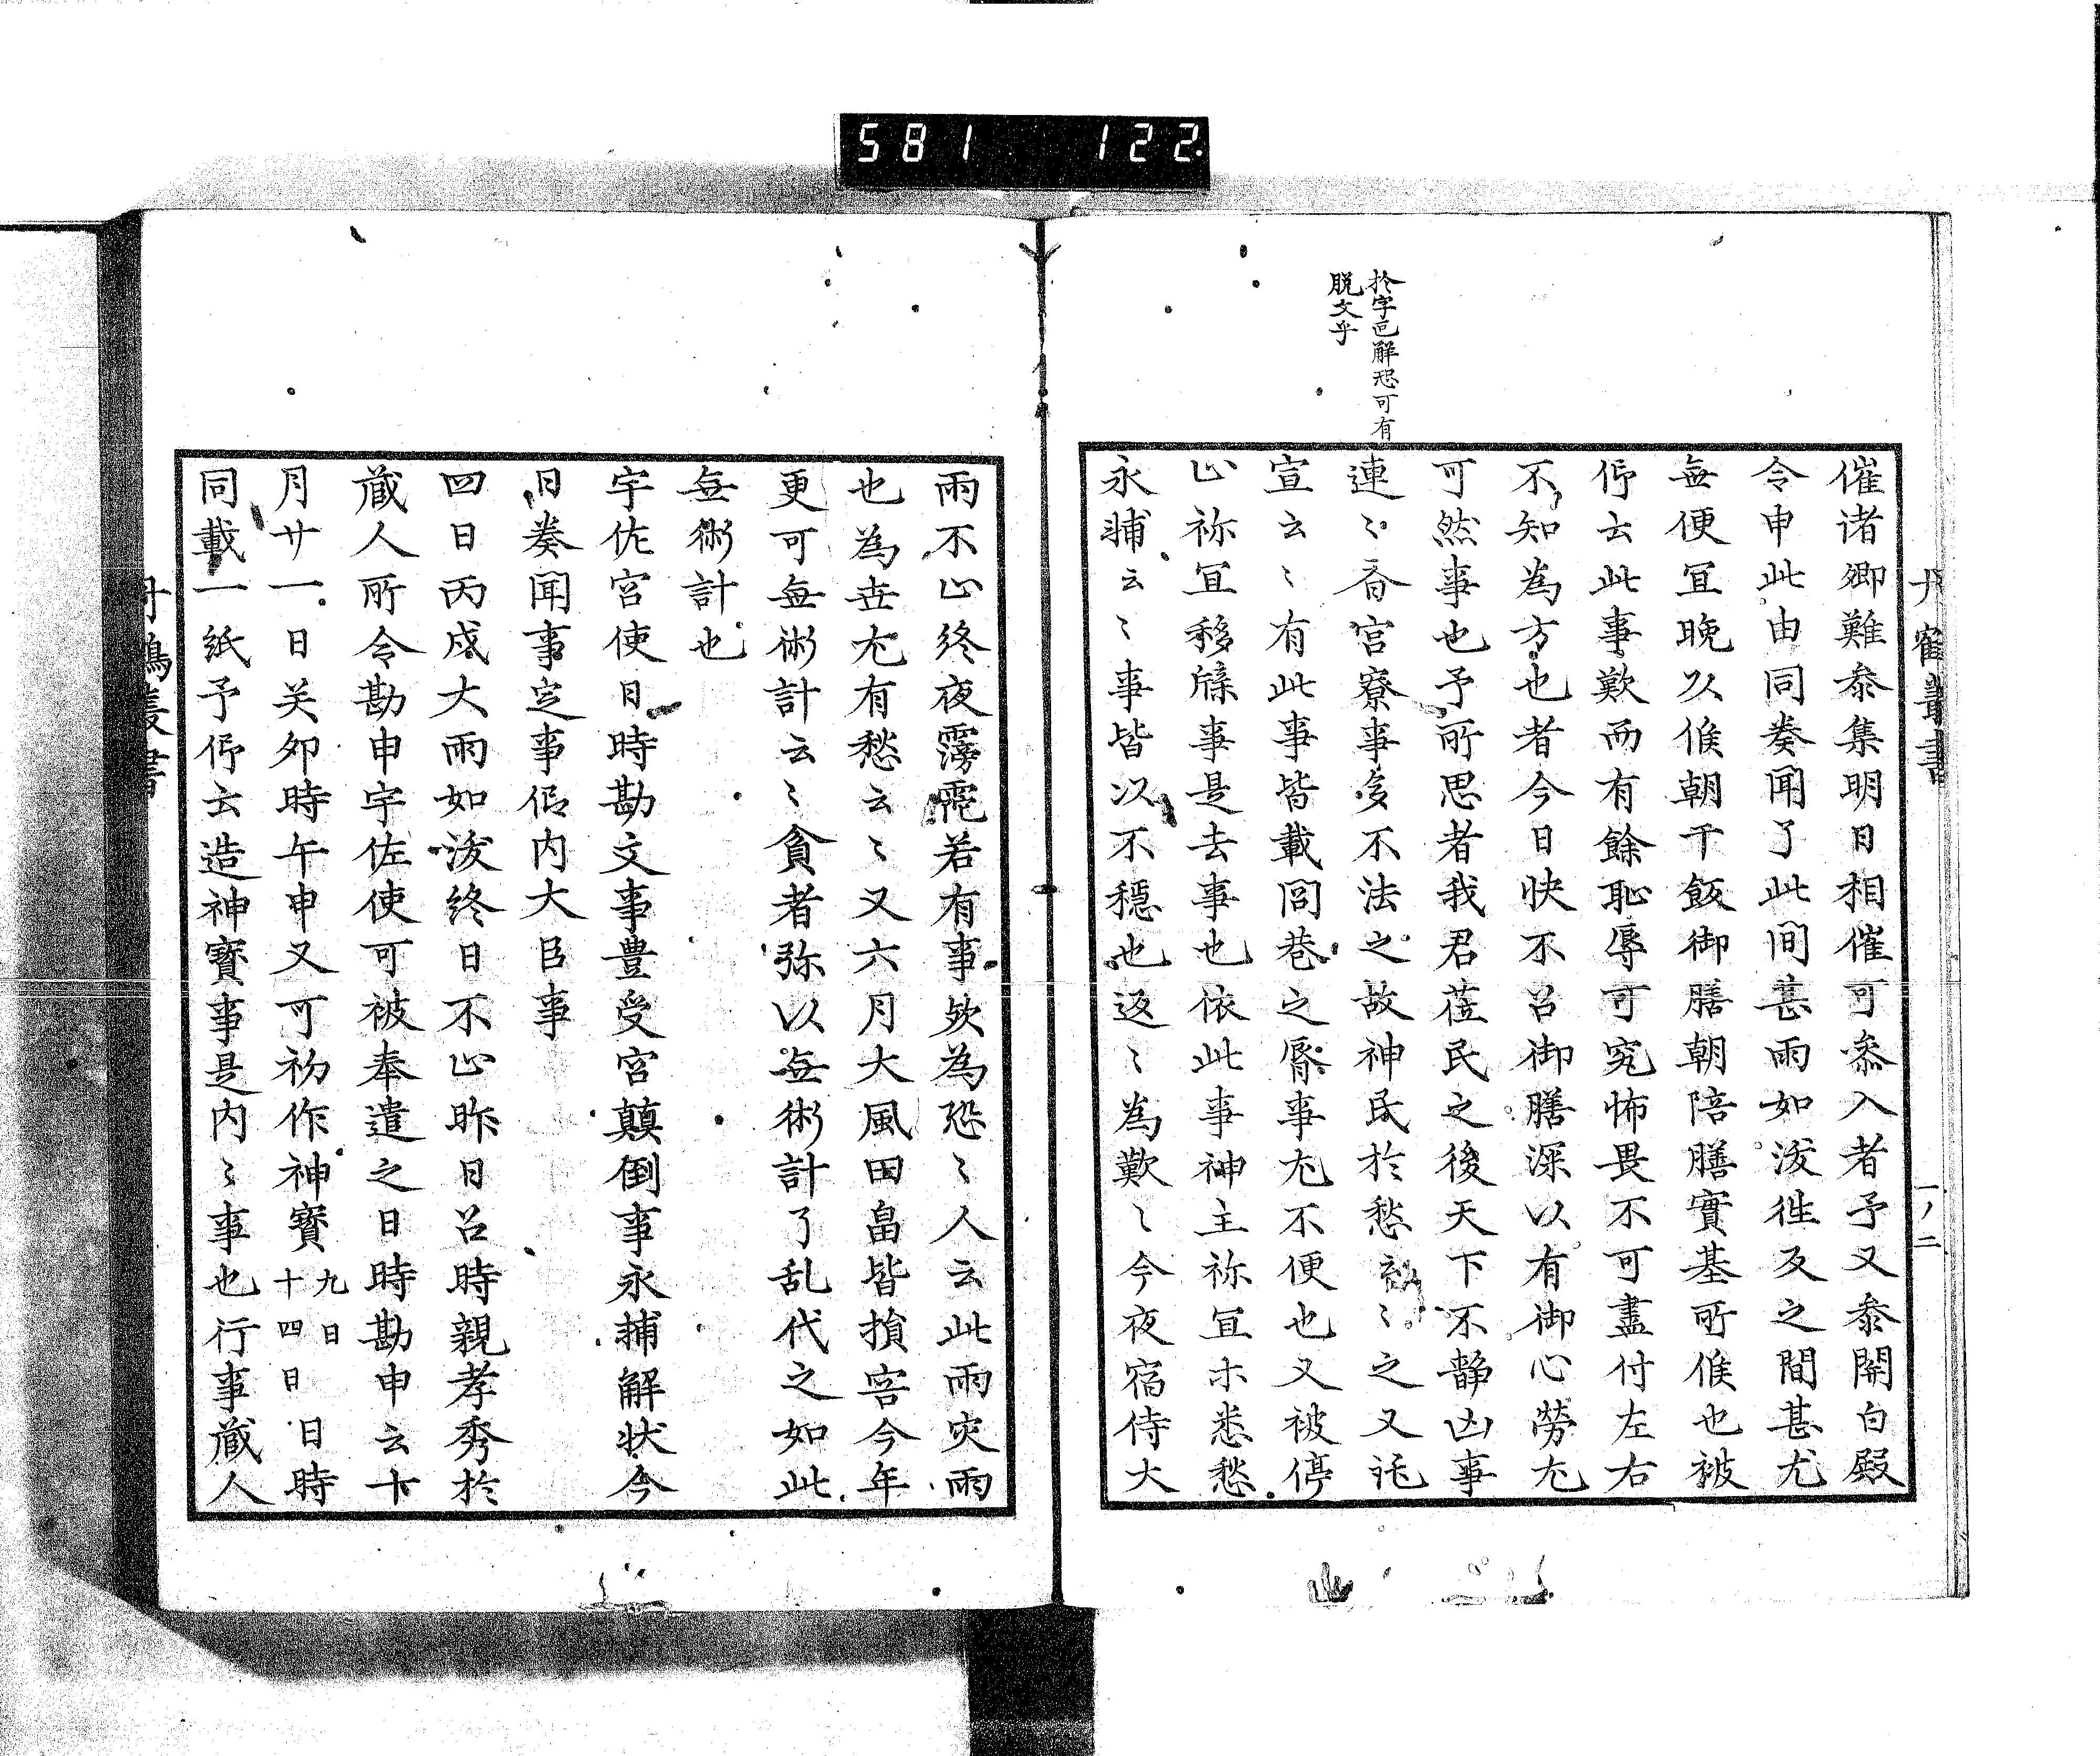 581 122
丹鶴叢書
一ノ二
於字叵解恐可有
脱文乎
催诸卿難叅集明日相催可叅入者予又叅関白殿
令申此由同奏聞了此间甚雨如沷徃反之間甚尤
無便冝晚以候朝干飯御膳朝陪膳實基所候也被
仰云此事歎而有餘恥辱可究怖畏不可盡付左右
不知為方也者今日快不召御膳深以有御心勞尤
可然事也予所思者我君莅民之後天下不静凶事
連〻斎宫寮事多不法之故神民於愁云〻之又託
宣云〻有此事皆載閭巷之脣事尤不便也又被停
止祢冝移牒事是去事也依此事神主祢冝ホ悉愁
永輔云〻事皆以不穏也返〻為歎〻今夜宿侍大
雨不止終夜霶霈若有事欤為恐〻人云此雨灾雨
也為世尤有愁云〻又六月大風田畠皆損害今年
更可無術計云〻貪者弥以無術計了乱代之如此
無術計也
宇佐宫使日時勘文事豊受宫顛倒事永輔解状今
日奏聞事定事仰内大臣事
四日丙戌大雨如沷終日不止昨日召時親孝秀於
蔵人所令勘申宇佐使可被奉遣之日時勘申云十
月廿一日癸卯時午申又可初作神寶九日十四日日時
同載一紙予仰云造神寳事是内〻事也行事蔵人
丹鶴叢書